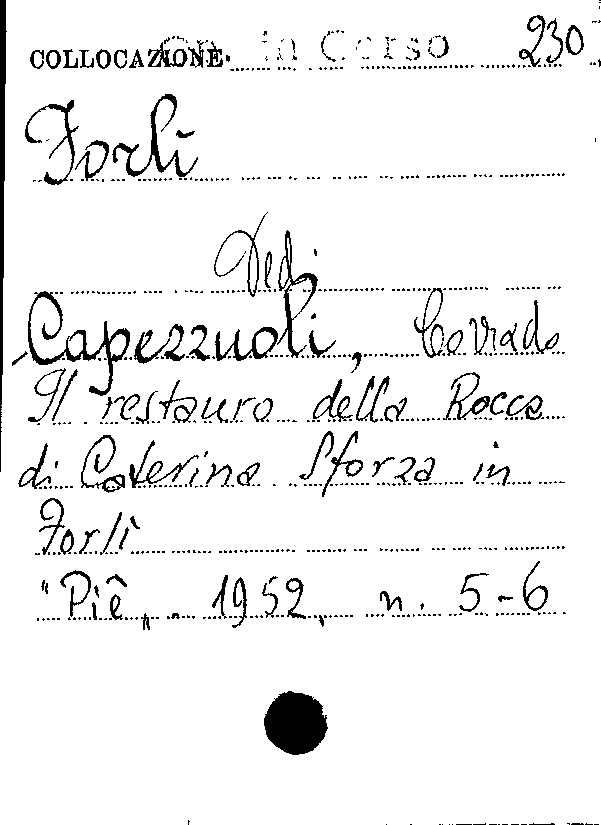 COLLOCAZIONE. in Corso 230
Forlì
Vedi
Capezzuoli, Corrado
Il restauro della Rocca
di Caterina Sforza in
Forlì
"Piê„. 1952, n. 5-6